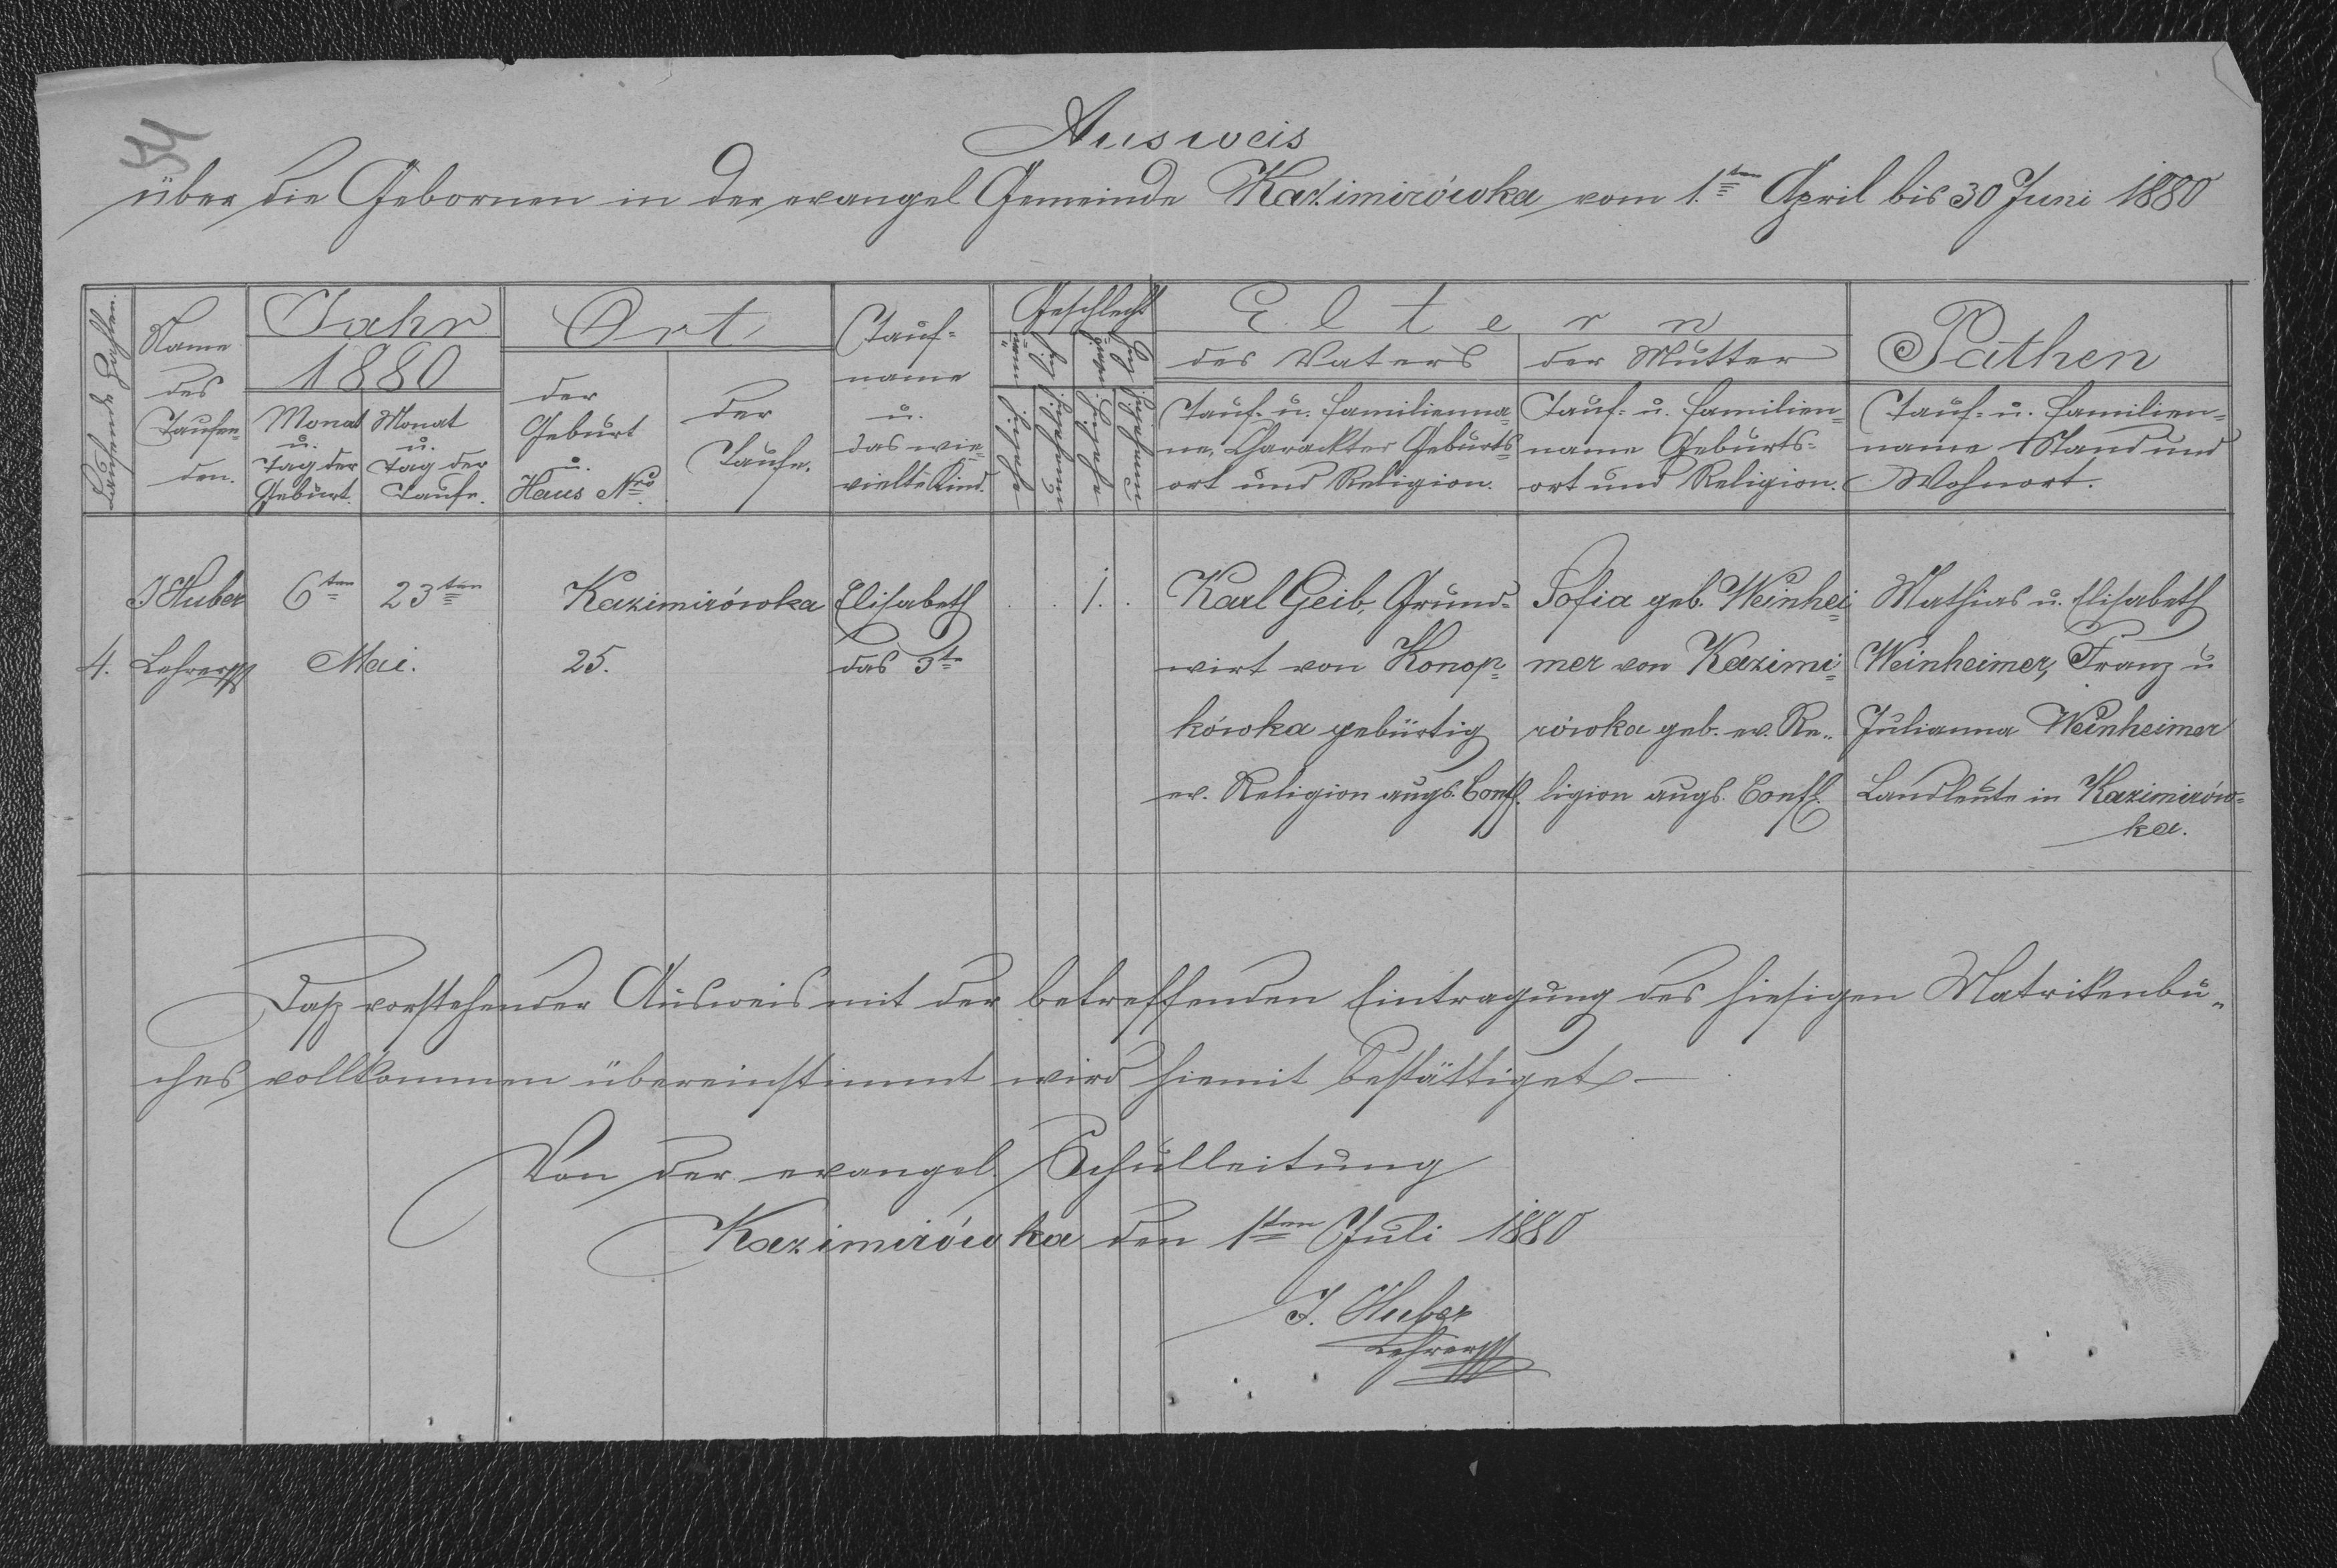 Ausweis
über die Gebornen in der evangel Gemeinde Kazimirówka vom 1.ten April bis 30 Juni 1880
Laufende Zahlen.
Name
des
Taufen-
den.
Jahr
1880
Monat
u.
Tag der
Geburt.
Monat
u.
Tag der
Taufe.
Ort
der
Geburt
u.
Haus Nro
der
Taufe.
Tauf-
name
u.
das wie-
vielte Kind.
Geschlecht
Eltern
des Vaters
Tauf- u. Familienna-
me, Charackter Geburts-
ort und Religion.
der Mutter
Tauf- u. Familien-
name Geburts-
ort und Religion.
Pathen
Tauf- u. Familien-
name Stand und
Wohnort.
4.
J Huber
Lehrer
6ten 23ten
Mai.
Kazimirówka
25.
Elisabeth
das 3te
1.
Karl Geib, Grund-
wirt von Konop-
kówka gebürtig
ev. Religion augs. Conf.
Sofia geb. Weinhei-
mer von Kazimi-
rówka geb. ev. Re-
ligion augs. Conf.
Mathias u. Elisabeth
Weinheimer, Franz u
Julianna Weinheimer
Landleute in Kazimirów-
ka.
Dass vorstehender Ausweis mit der betreffenden Eintragung des hiesigen Matrikenbu-
ches vollkommen übereinstimmt wird hiemit bestättiget
Von der evangel. Schulleitung
Kazimirówka den 1ten Juli 1880
J. Huber
Lehrer